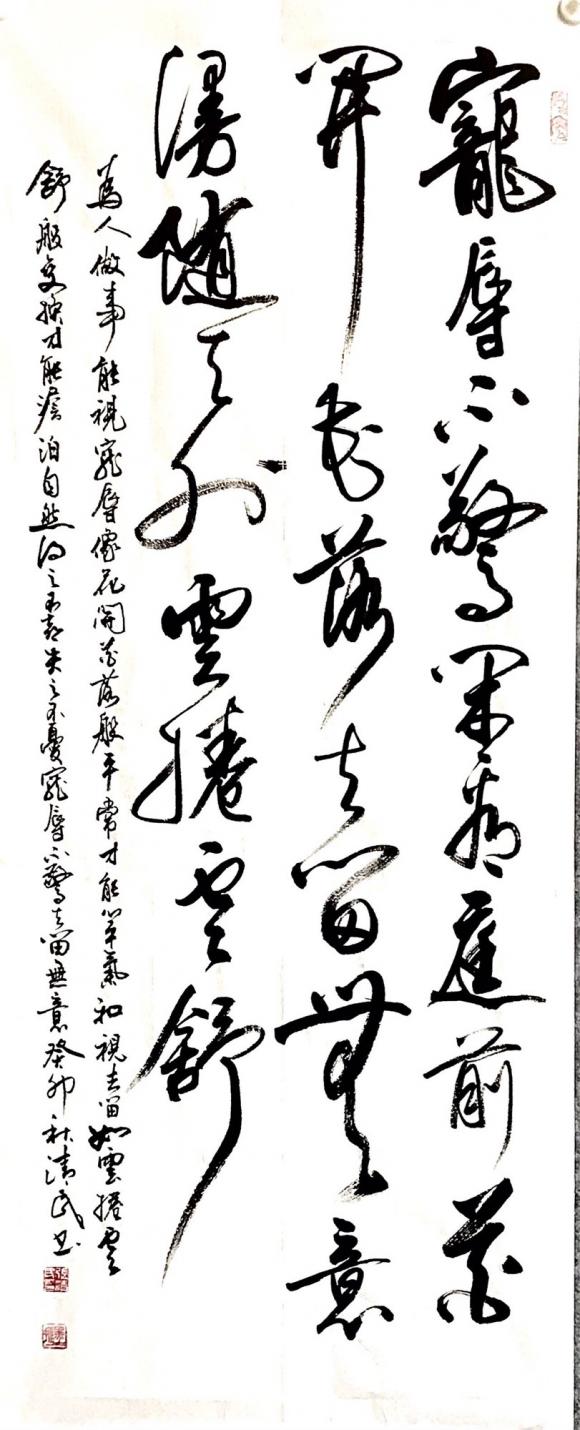 寵辱不驚閑看庭前花
開花落去留無意
漫隨天外雲捲雲舒
為人做事能視寵辱像花開花落般平常才能心平氣和視去留如雲捲雲
舒般变換才能澹泊自然得之不喜失之不憂寵辱不驚去留無意癸卯秋清民书